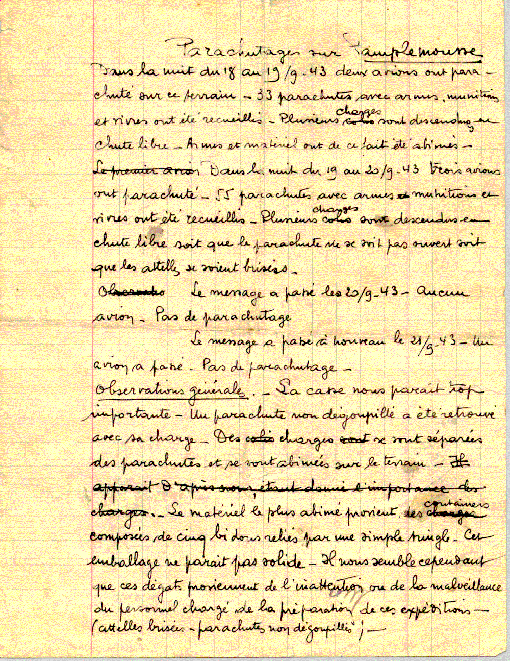 Parachutages sur Pamplemousse
Dans la nuit du 18 au 19/9-43 deux avions ont para-
chuté sur ce terrain - 33 parachutes avec armes, munitions
et vivres ont été recueillis - Plusieurs colis charges sont descendus en
chute libre - Armes et matériel ont de ce fait été abimés -
Le premier avion Dans la nuit du 19 au 20/9-43 trois avions
ont parachuté - 55 parachutes avec armes et munitions et
vivres ont été recueillis - Plusieurs colis charges sont descendus en
chute libre soit que le parachute ne se soit pas ouvert soit
que les attelles se soient brisées -
Le message a passé le 20/9-43 - Aucun
avion - Pas de parachutage
Le message a passé à nouveau le 21/9-43 - Un
avion a passé - Pas de parachutage -
Observations générale. - La casse nous parait trop
importante - Un parachute non dégoupillé a été retrouvé
avec sa charge - Des colis charges sont se sont séparées
des parachutes et se sont abimées sur le terrain - Il
apparait D'après nous, étant donné l'importance des
charges. - Le matériel le plus abimé provient des charges containers
composés de cinq bidons reliés par une simple tringle - Cet
emballage ne parait pas solide - Il nous semble cependant
que ces dégats proviennent de l'inattention ou de la malveillance
du personnel chargé de la préparation de ces expéditions -
(attelles brisées - parachutes non dégoupillés) -